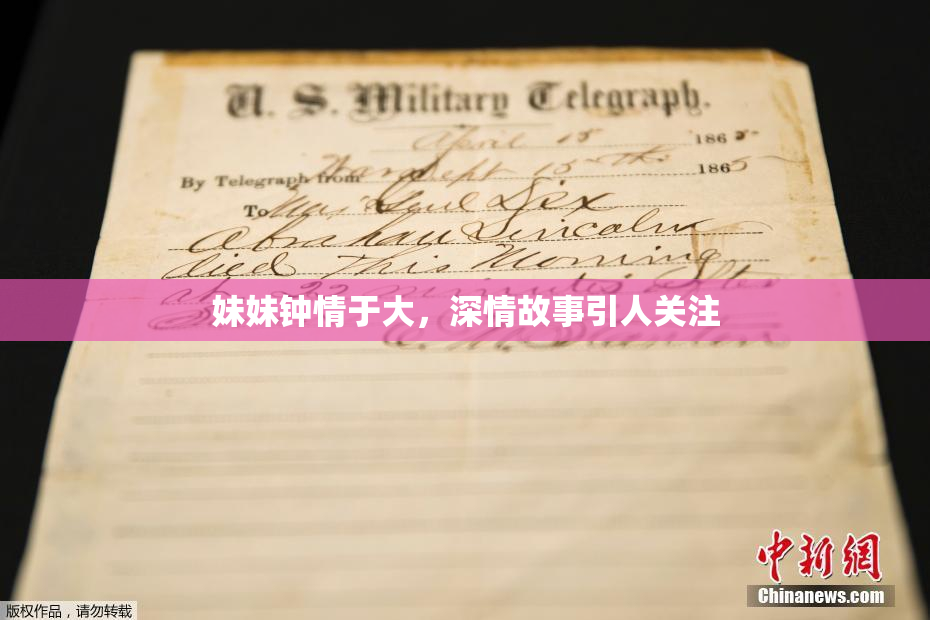 U. S. Military Telegraph.
April 15 1865
By Telegraph from War Dept 15th 1865
To Maj Genl Dix
Abraham Lincoln
died This Morning
at 22 minutes after
妹妹钟情于大，深情故事引人关注
E. M. Stanton
中新網
Chinanews.com
版权作品，请勿转载